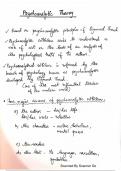 Psychoanalytic Theory
✓ Based on psychoanalytic principles of Sigmund Freud
✓ Psychoanalytic criticism seeks to understand a
work of art on the basis of an analysis of
the psychological traits of its author.
✓ Psychoanalytical criticism is defined by the
branch of psychology known as psychoanalysis
developed by Sigmund Freud
(one of the most influential thinkers
of the modern world)
of psychoanalytic criticism:
a) the author -
b) the characters -
c) the reader
d) the text - the language, narration,
symbolism
Scanned By Scanner Go